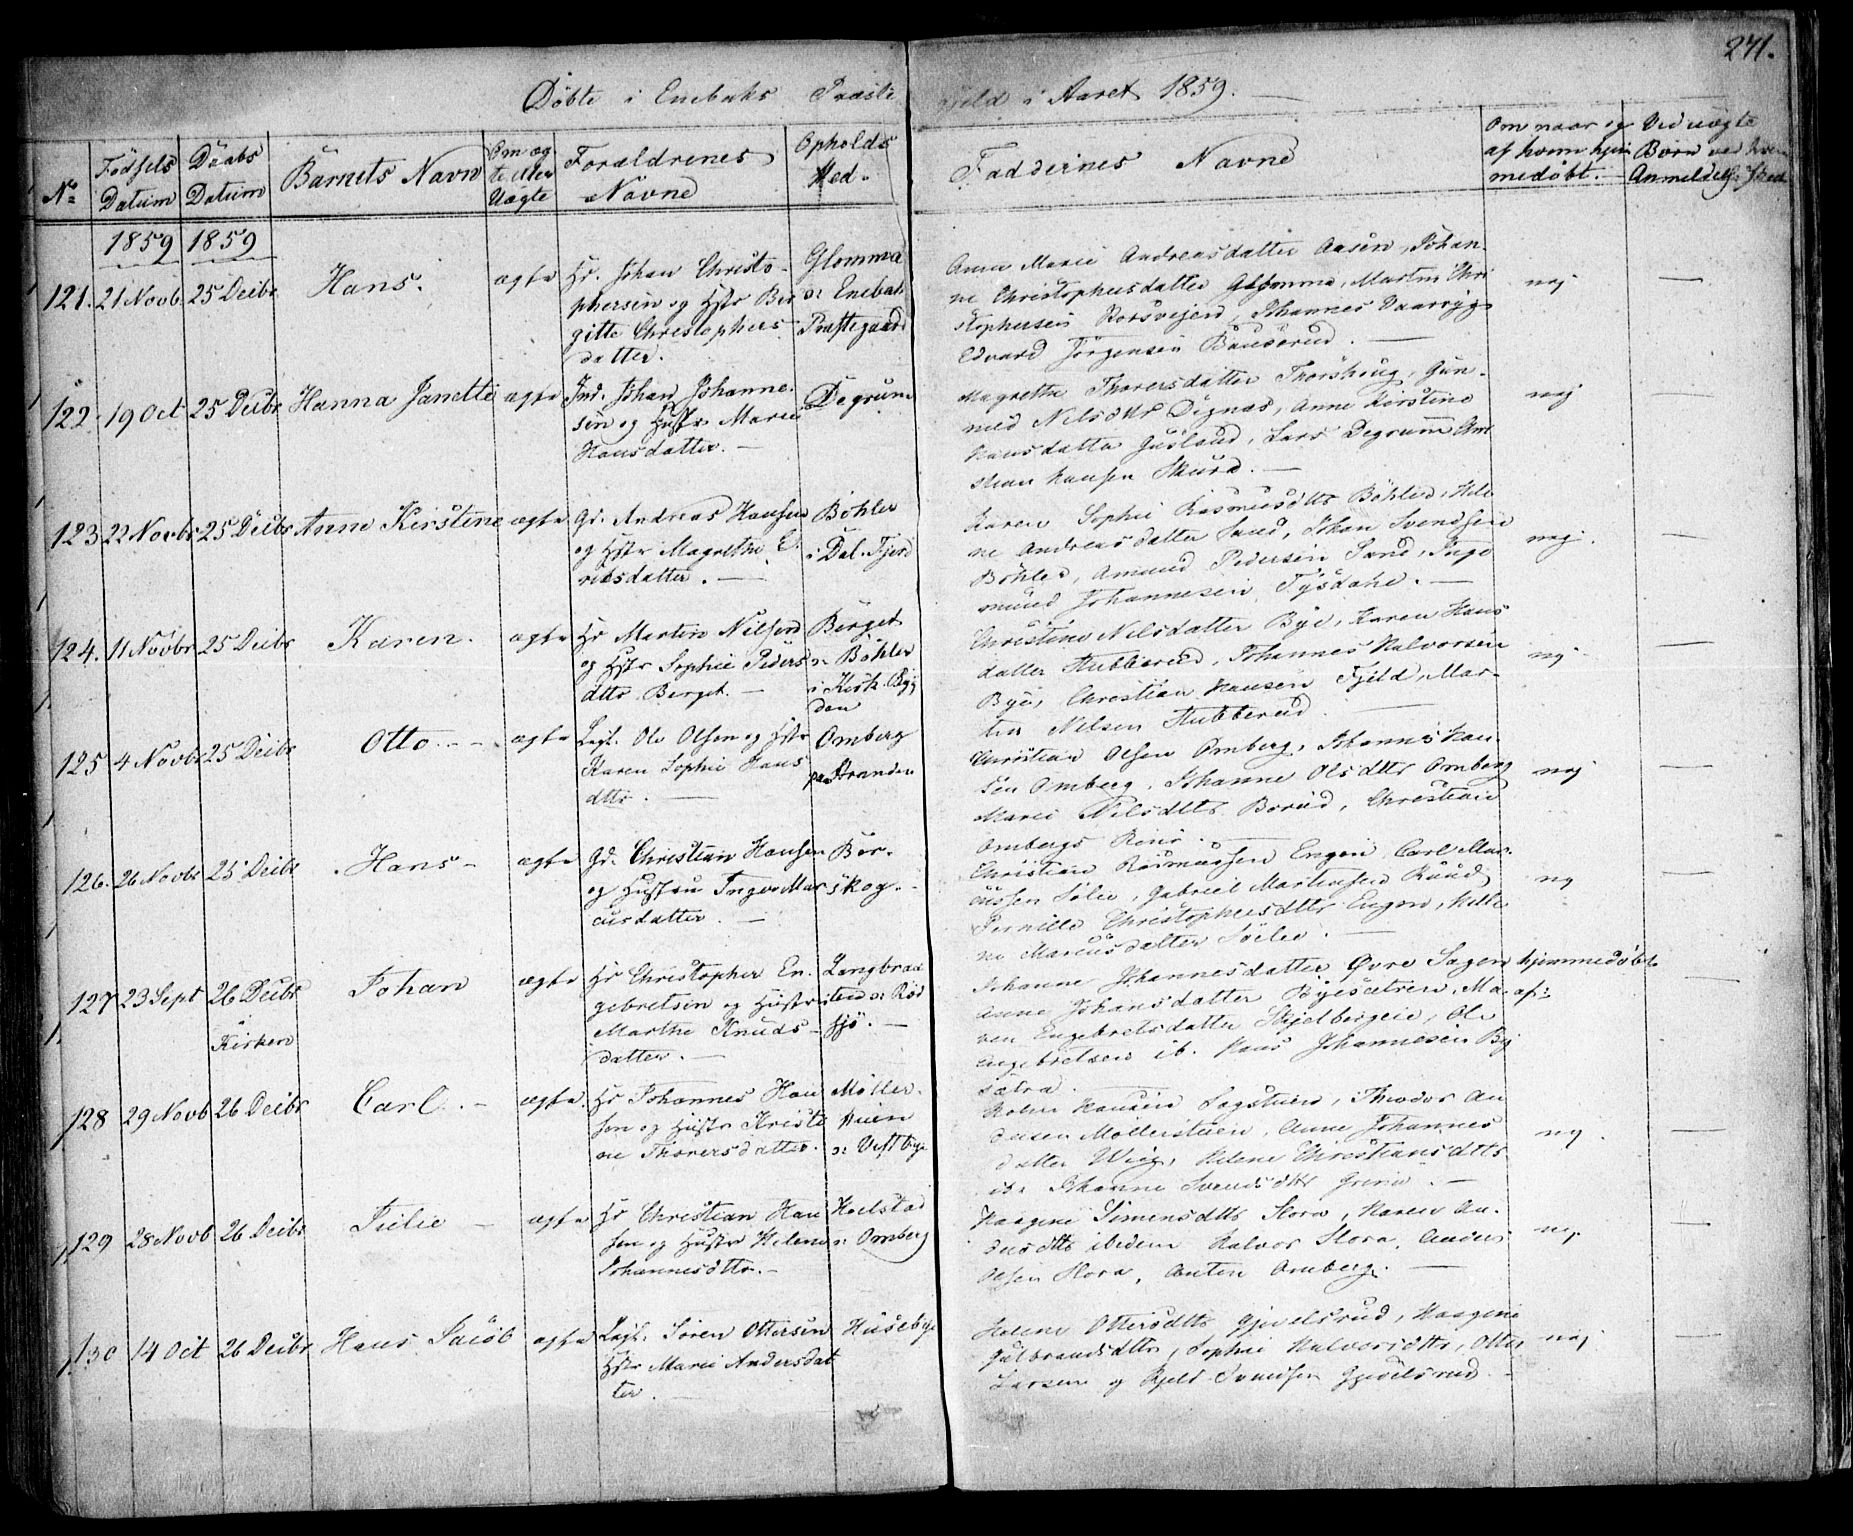 271.
Döbte i Enebaks Præste gjeld i Aaret 1859.
No Födsels Datum Daabs Datum Barnets Navn Om ægte eller Uægte Forældrenes Navne Opholds Sted. Faddernes Navne Om naar og af hvem hjemmedøbt. Ved uægte Børn
1859 1859
121. 21 Novb 25 Decbr Hans. ægte
Hr. Johan Christo-
phersen og Hstr Ber
gitte Christophers
datter.
Glomma
o: Enebak
Præstegaard
Anne Marie Andreasdatter Aasen, Johan-
ne Christophersdatter Glomma, Martin Chri
stophersen Korsvejen, Johannes Vaarryg
Edvard Jörgensen Bausörud.
nej
122. 19 Oct 25 Decbr Hanna Janette ægte
Ind. Johan Johanne-
sen og Hustr Maren
Hansdatter.
Degrum
Magrethe Thorersdatter Thorshoug, Gun-
nild Nilsdttr Dignæs, Anne Kirstine
Hansdatter Gusland, Lars Degrum
Hansen Skura.
nej
123 22 Novbr 25 Decbr Anne Kirstine ægte
Gd. Andreas Hansen
og Hstr Magrethe E.
riksdatter.
Böhler
i Dal. Fjerd
Karen Sophie Rasmusdttr Böhler, Hele
ne Andreasdatter Sand, Johan Svendsen
Böhler, Amund Pedersen Sand, Inge
mund Johannesen Tysdahl.
nej.
124. 11 Novbr 25 Decbr Karen. ægte
Hr Martin Nilsen
og Hstr Sophie Peders
dttr Berget.
Berget
o: Böhler
i Kirk. Byg
den
Christine Nilsdatter Bye, Karen Hans
datter Stubberud, Johannes Halvorsen
Bye, Christian Hansen Fjeld, Mar-
tin Nilsen Stubberud.
nej
125 4 Novbr 25 Decbr Otto. ægte
Lagt. Ole Olsen og Hstr
Karen Sophie Hans
dttr.
Omberg
paa Stranden
Christian Olsen Omberg, Johannes Han-
sen Omberg, Johanne Olsdttr Omberg
Maren Nilsdttr Borud, Christian
Ombergs
nej
126. 26 Novbr 25 Decbr Hans ægte
Gd. Christian Hansen
og Hustru Inger Mar
cusdatter.
Bör-
skog.
Christian Rasmussen Engen, Carl Mar-
cussen Sölie, Gabriel Martinsen Ruud
Pernille Christophersdttr Engen, Hele
ne Marcusdatter Söelie.
nej
127 23 Sept 26 Decbr
i
Kirken
Johan ægte
Hr Christopher En-
gebretsen og Hustr
Marthe Knuds-
datter.
Langbraa
ten o: Röd
sjö.
Johanne Johannesdatter Øvre Sagen
Anne Johansdatter Byesætren, Ma-
ren Engebretsdatter Skjelbergeie, Ole
Engebretsen ib. Hans Johannesen By
sætra.
hjemmedøbt
af:
128 29 Novb 26 Decbr Carl. ægte.
Hr Johannes Han
sen og Hustr Kristi
ne Thorersdatter.
Möller-
stuen
o: Vestbye
Hansen Sagstuen, Theodor An
dersen Möllerstuen, Anne Johannes
datter Wiig, Helene Christiansdttr
ib. Johanne Svendsdttr
nej.
129 28 Novb 26 Decbr Julie ægte
Hr Christian Han
sen og Hustr Helene
Johannesdttr.
Holstad
o: Omberg
Haagine Simensdttr Slora, Karen An-
dersdttr ibidem Halvor Slora, Anders
Olsen Slora, Anten Omberg.
nej.
130 14 Oct 26 Decbr Hans Jacob ægte
Lagt. Sören Ottersen
Hstr Maren Andersdat
ter.
Husebye
Helene Ottersdttr Gjevelsrud, Haagine
Gulbrandsdttr, Sophie Halvorsdttr, Otter
Larsen og Kjeld Svendsen Gjevelsrud.
nej